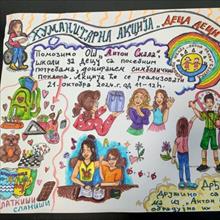 ХУМАНИТАРНА АКЦИЈА - ДЕЦА ДЕЦИ
Помозимо ОШ „Антон Скала",
школи за децу са посебним
потребама, донирањем симболичних
поклона. Акција ће се реализовати
21. октобра 2024. г од 11-12h.
СЛАТКИШИ
СЛАНИШИ
Дружимо са